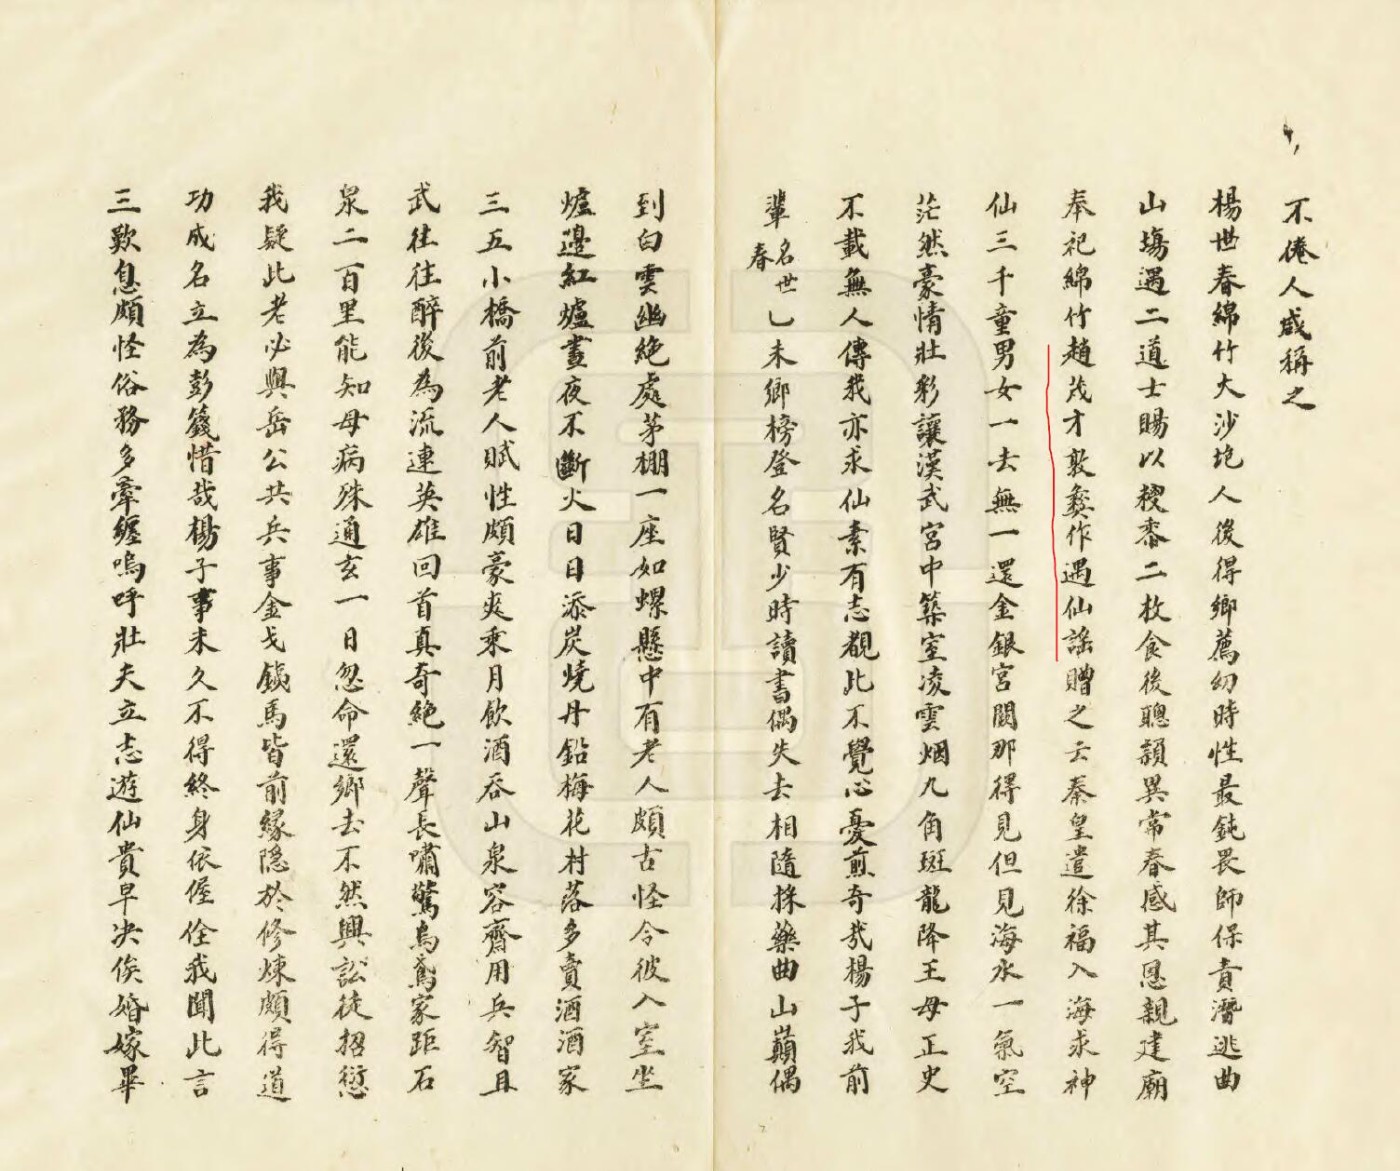 不倦人咸稱之
楊世春綿竹大沙坨人後得鄉薦幼時性最鈍畏師保責潛逃曲
山塲遇二道士賜以稷黍二枚食後聰頴異常春感其恩親建廟
奉祀綿竹趙茂才敦彝作遇仙謡贈之云秦皇遣徐福入海求神
仙三千童男女一去無一還金銀宮闕那得見但見海水一氣空
茫然豪情壯彩讓漢武宮中築室凌雲烟九角斑龍降王母正史
不載無人傳我亦求仙素有志覩此不覺心憂煎奇哉楊子我前
輩名世春乙未鄉榜登名賢少時讀書偶失去相隨採藥曲山巔偶
到白雲幽絶處茅棚一座如螺懸中有老人頗古怪令彼入室坐
爐邊紅爐晝夜不斷火日日添炭燒丹鉛梅花村落多賣酒酒家
三五小橋前老人賦性頗豪爽乘月飲酒吞山泉容齋用兵智且
武往往醉後為流連英雄回首真奇絶一聲長嘯驚烏鳶家距石
泉二百里能知母病殊通玄一日忽命還鄉去不然興訟徒招愆
我疑此老必與岳公共兵事金戈鐵馬皆前緣隱於修煉頗得道
功成名立為彭籛惜哉楊子事未久不得終身依偓佺我聞此言
三歎息頗怪俗務多牽纏嗚呼壯夫立志遊仙貴早决俟婚嫁畢